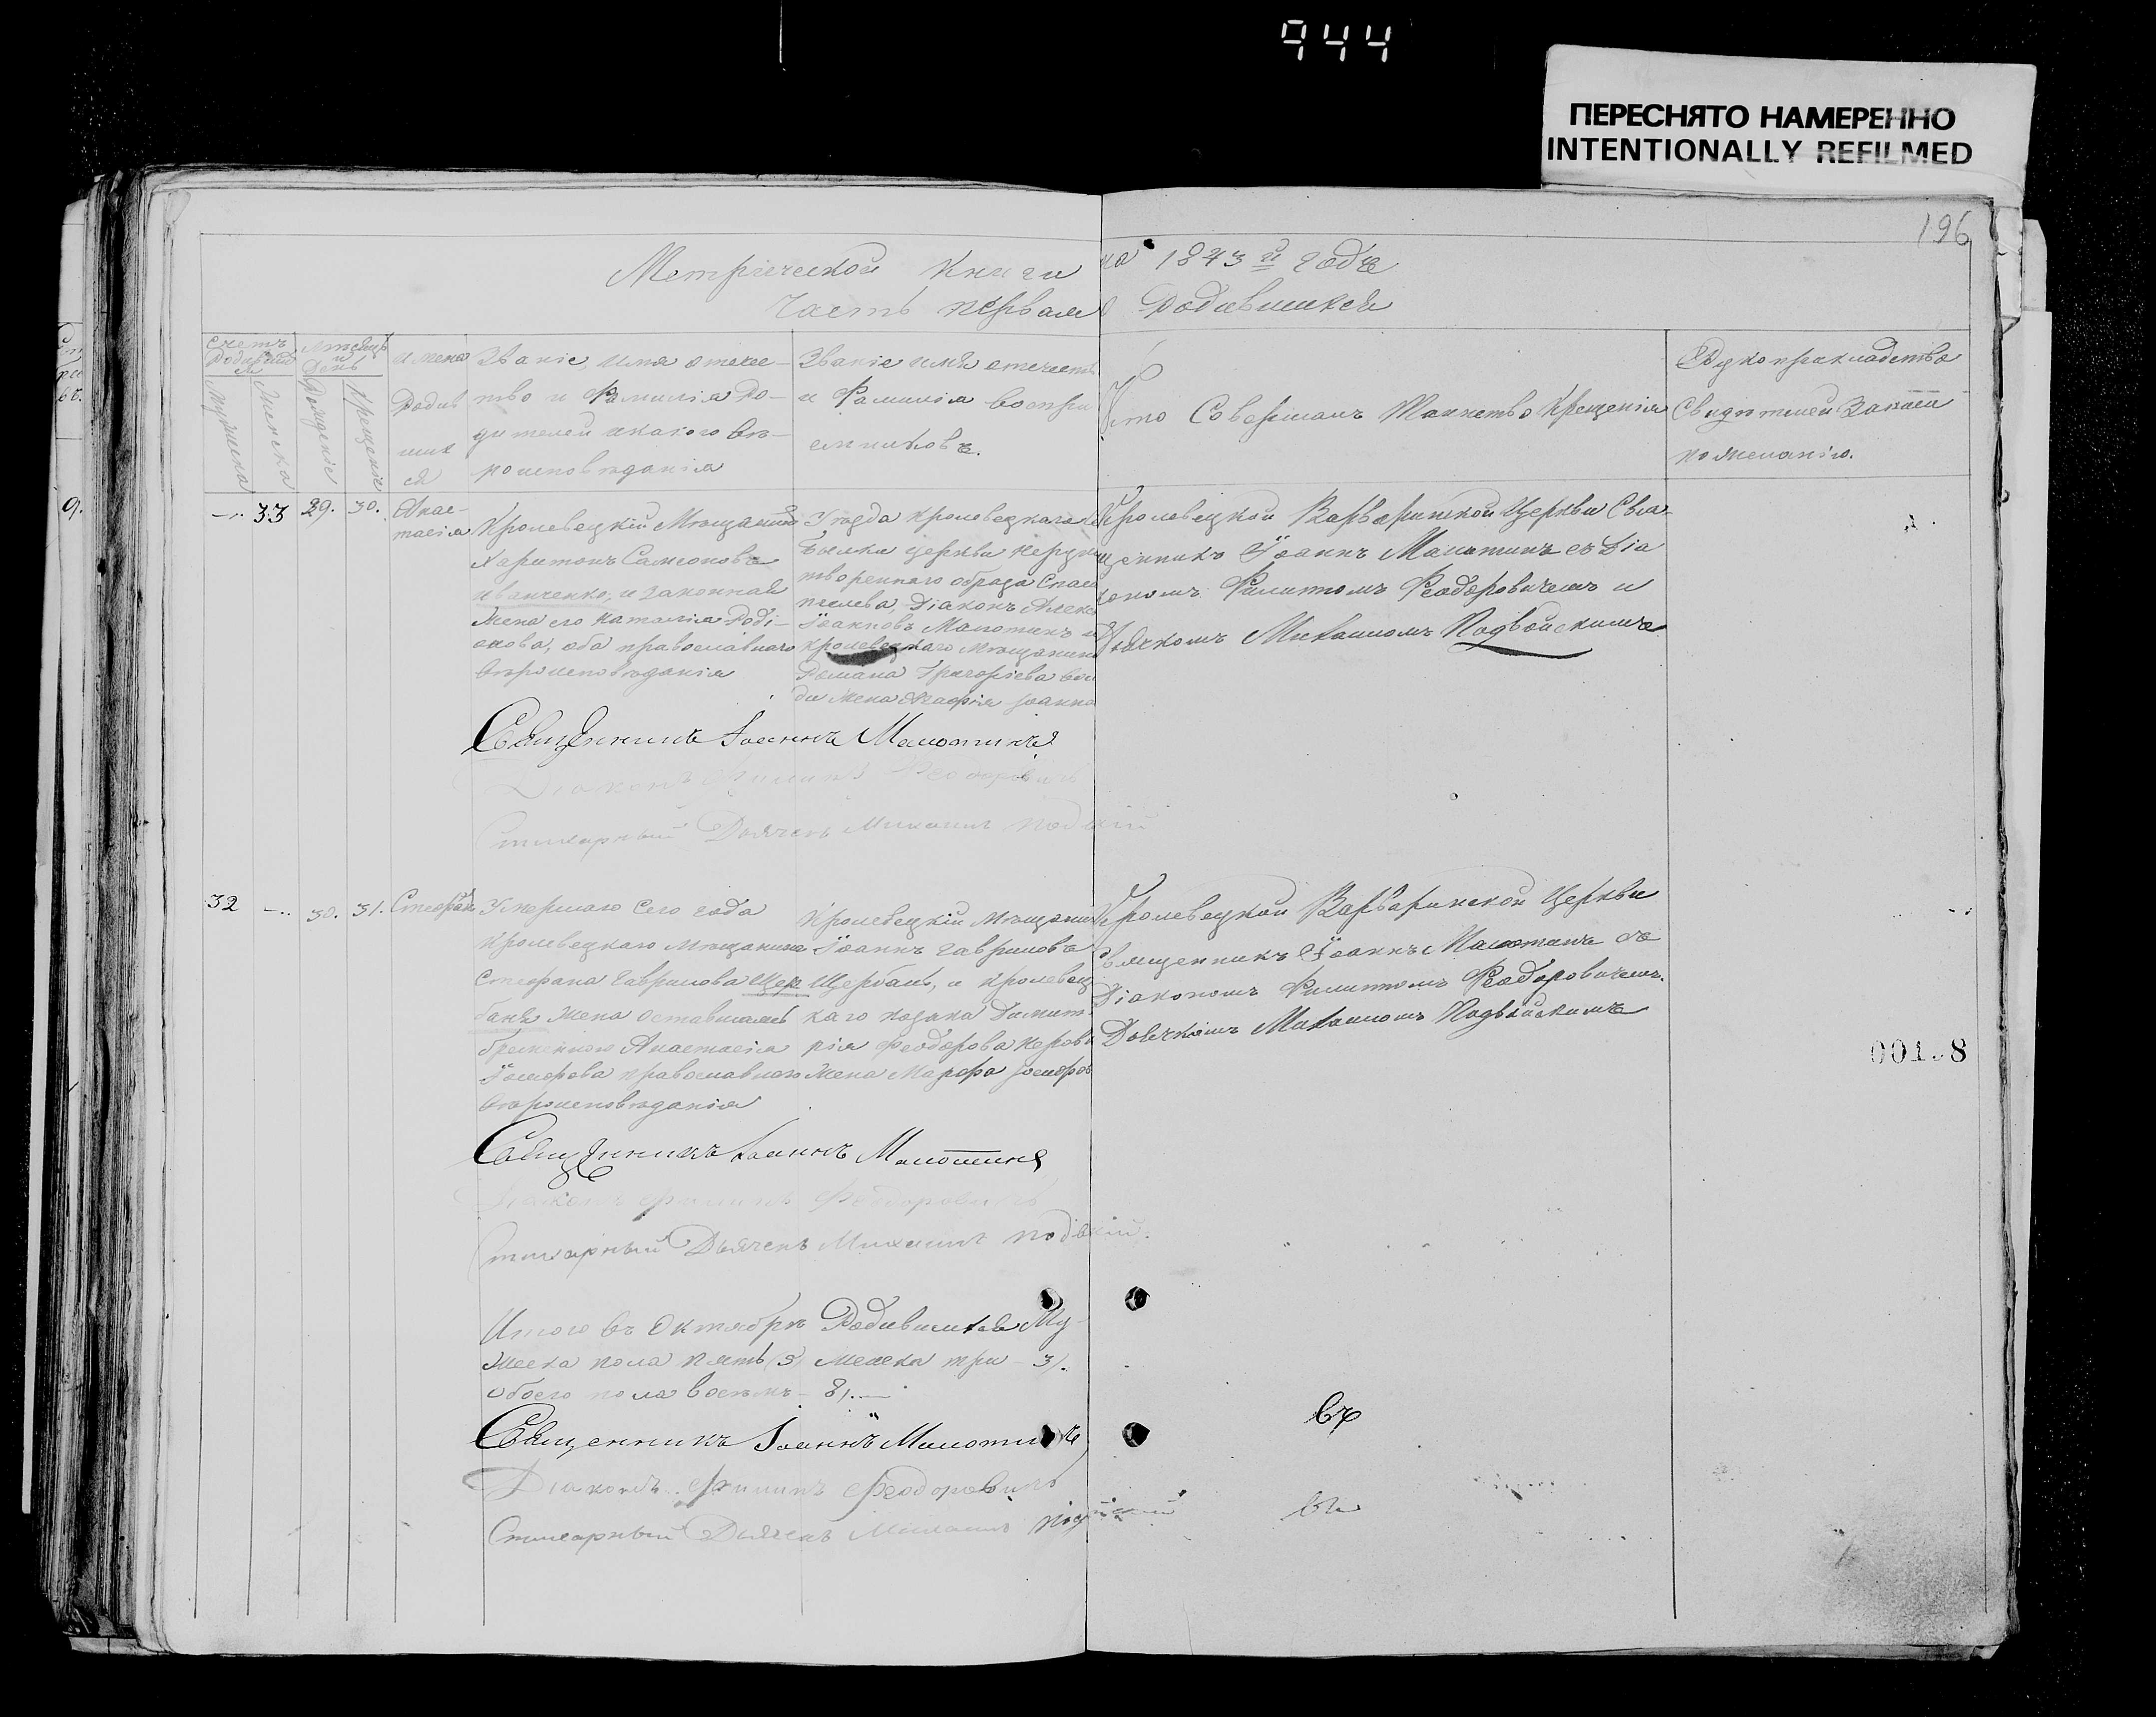 944
ПЕРЕСНЯТО НАМЕРЕННО
INTENTIONALLY REFILMED
196
Метрической Книги на 1873й годъ
Часть первая о Родившихся
Счетъ Родившихся
Мужеска
Женска
Мѣсяцъ и День
Рожденіе
Крещеніе
Имена
Родив
ших
ся
Званіе, имя отече-
тво и Фамилія Ро-
дителей и какого вѣ-
роисповѣданія
Званіе имя отечеств
и Фамилія воспри
емниковъ.
Кто Совершалъ Таинство Крещенія
Рукоприкладство
Свидѣтелей записи
по желанію.
9.
33 29. 30.
Анас-
тасія
Кролевецкій Мѣщанинъ
Харитонъ Самсоновъ
Иванченко, и законная
жена его Наталія Роді-
онова, оба православнаго
вѣроисповѣданія
Уѣзда Кролевецкаго
церкви Неруко
твореннаго образа Спаси
теля, Діаконъ Алекс
Іоанновъ Малютинъ и
Кролевецкаго мѣщанина
Романа Григоріева
жена Агафія Іоанно
Кролевецкой Варваринской Церкви Свя-
щенникъ Іоаннъ Малютинъ съ Діа
кономъ Филиппомъ Феодоровичемъ и
Дьячкомъ Михаиломъ Подвойскимъ
Священникъ Іоаннъ Малютинъ
Діаконъ Филиппъ Феодоровичъ
Стихарный Дьячекъ Михаилъ
32 30. 31. Стефанъ
Умершаго Сего года
Кролевецкаго мѣщанина
Стефана Гаврилова Щер
банъ жена оставшаясь
беременною Анастасія
Іосифова православнаго
вѣроисповѣданія
Кролевецкій мѣщанинъ
Іоаннъ Гавриловъ
Щербань, и Кролевец
каго козака Димит-
рія Феодорова
жена Марфа Іосифов
Кролевецкой Варваринской Церкви
Священникъ Іоаннъ Малютинъ съ
Діакономъ Филиппомъ Феодоровичемъ.
Дьячкомъ Михаиломъ Подвойскимъ
Священникъ Іоаннъ Малютинъ
Діаконъ Филиппъ Феодоровичъ
Стихарный Дьячекъ Михаилъ
Итого въ Октябрѣ Родившихся Му-
жеска пола пять (5) женска три – 3).
обоего пола восемь – 8).
Священникъ Іоаннъ Малютинъ
Діаконъ Филиппъ Феодоровичъ
Стихарный Дьячекъ Михаилъ